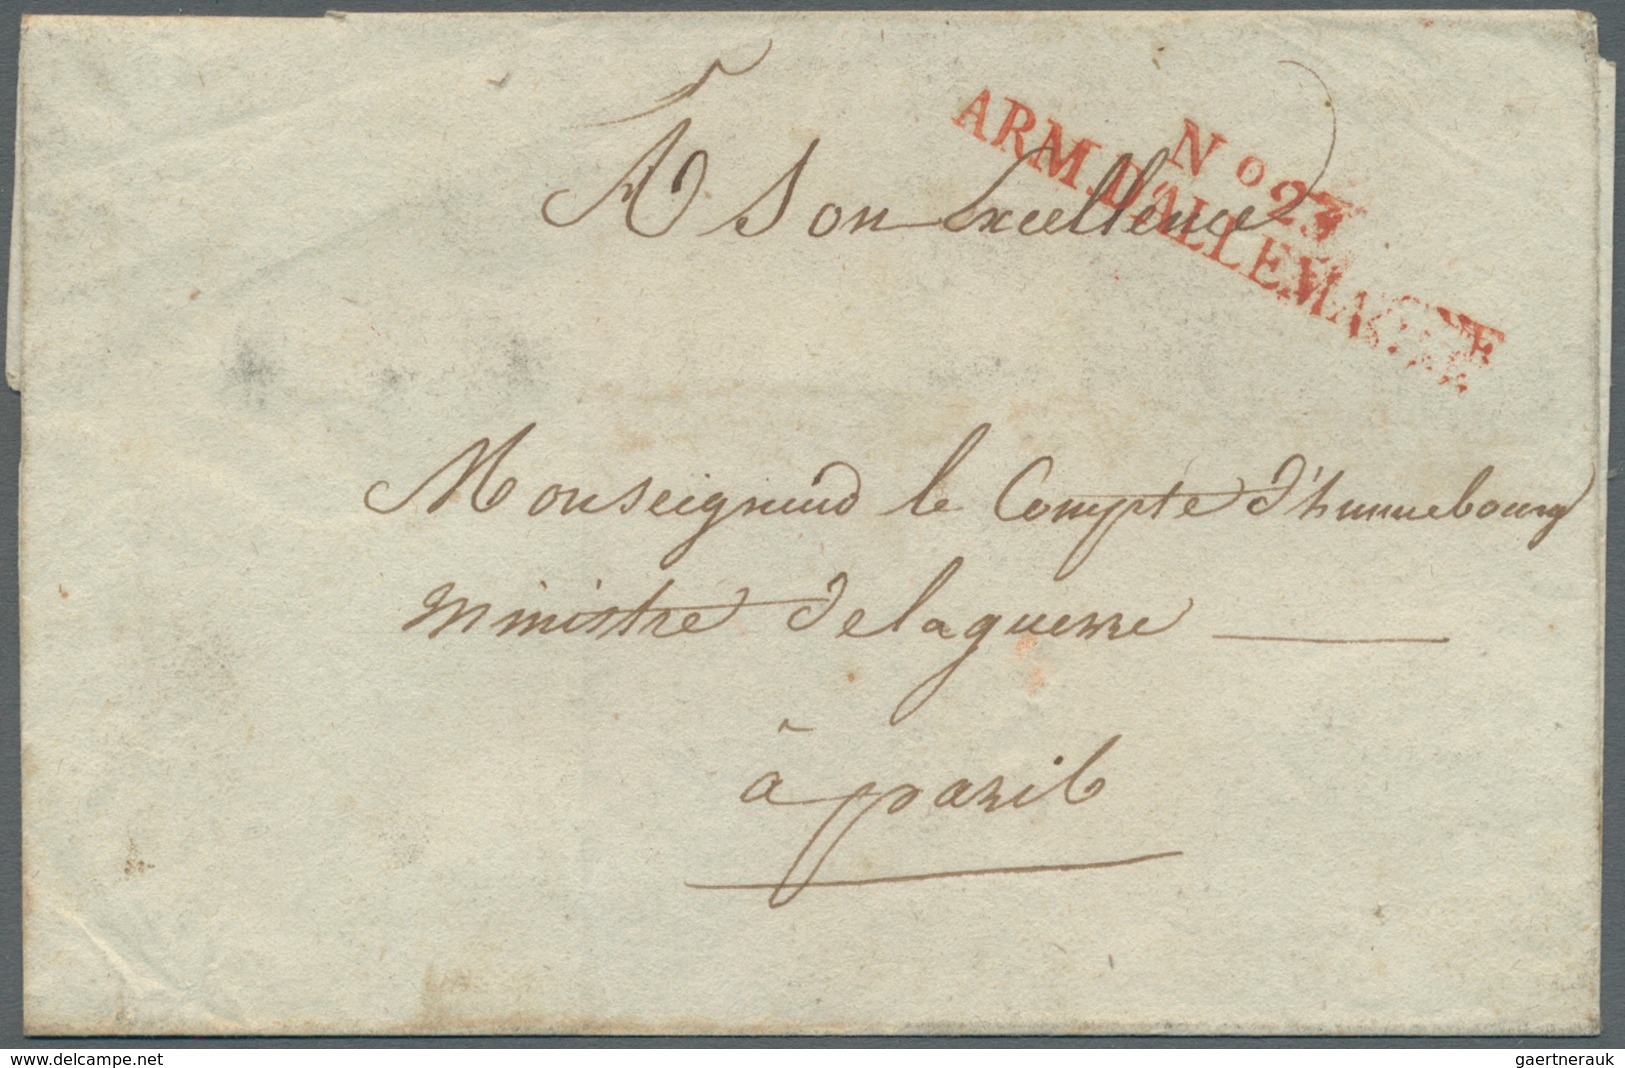 No 23
ARM. D'ALLEMAGNE
A Son Excellence
Monseigneur le Compte d'hunnebourg
ministre de la guerre
à paris
www.delcampe.net
gaertnerauk